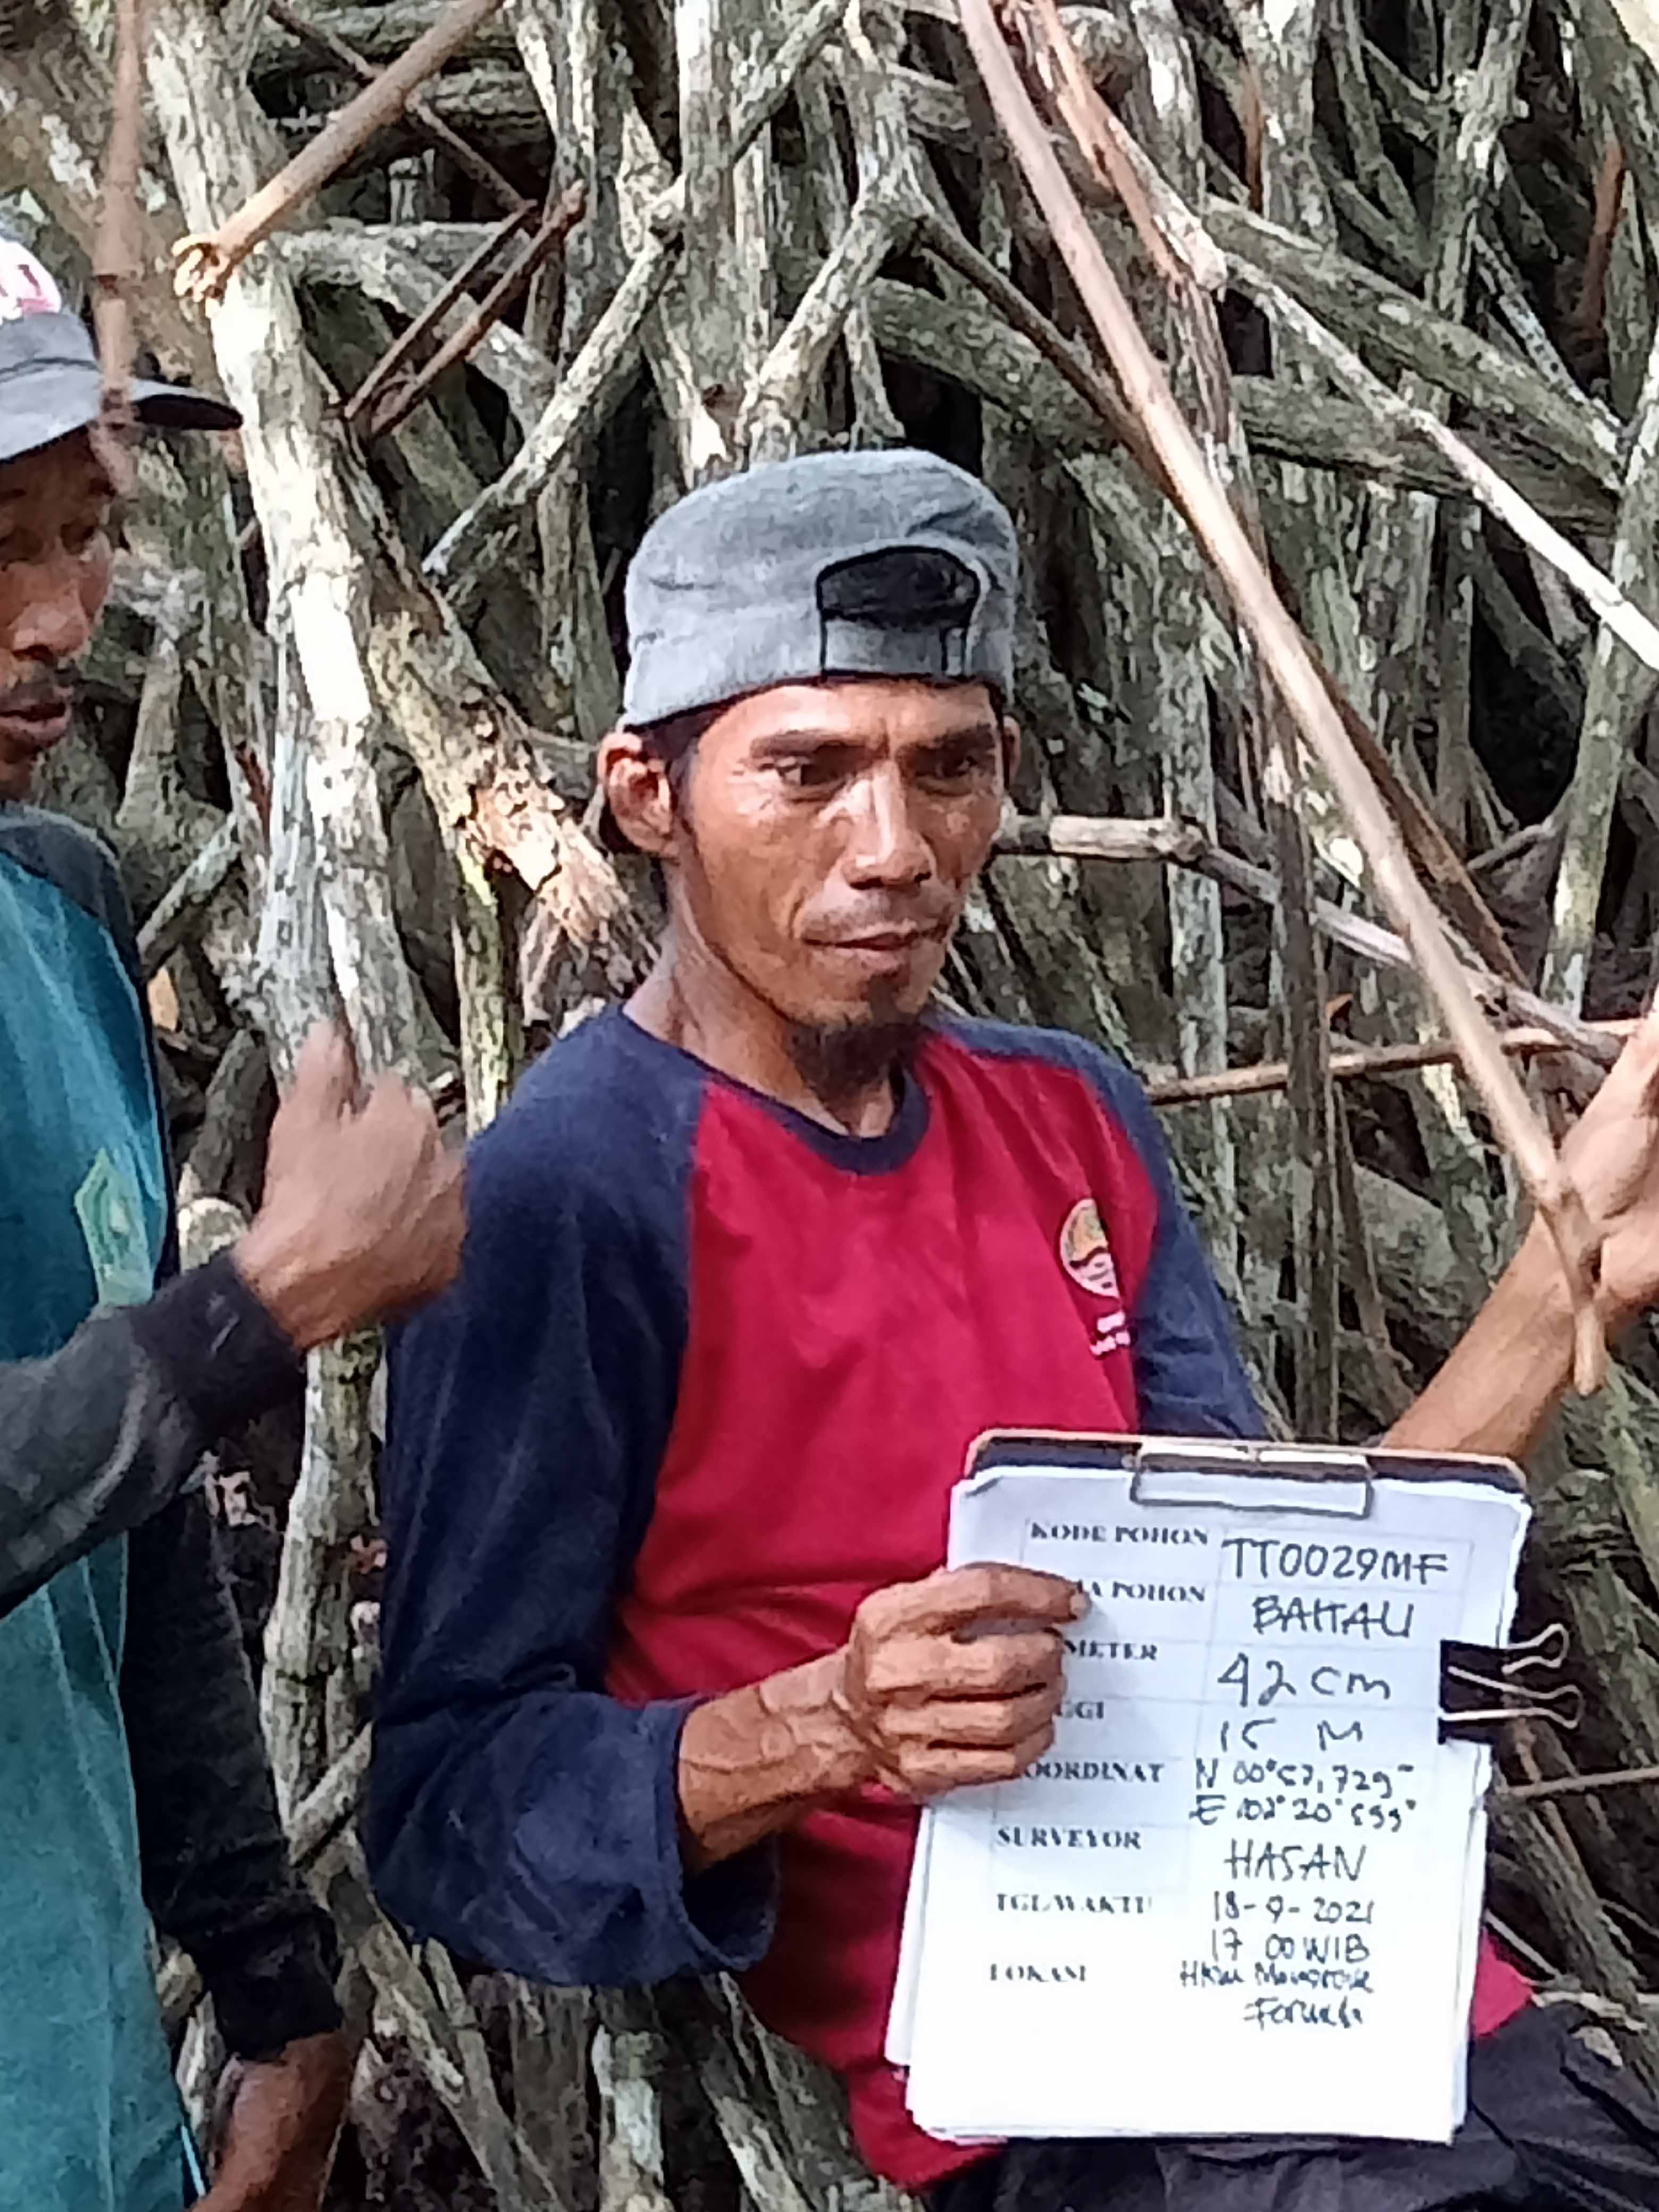 KODE POHON TT0029MF
MA POHON BAKAU
METER 42 cm
GGI 15 M
OORDINAT N 00°57,729"
E 102°20'599"
SURVEYOR HASAN
TGL/WAKTU 18-9-2021
17 00 WIB
LOKASI HKM Mangrove